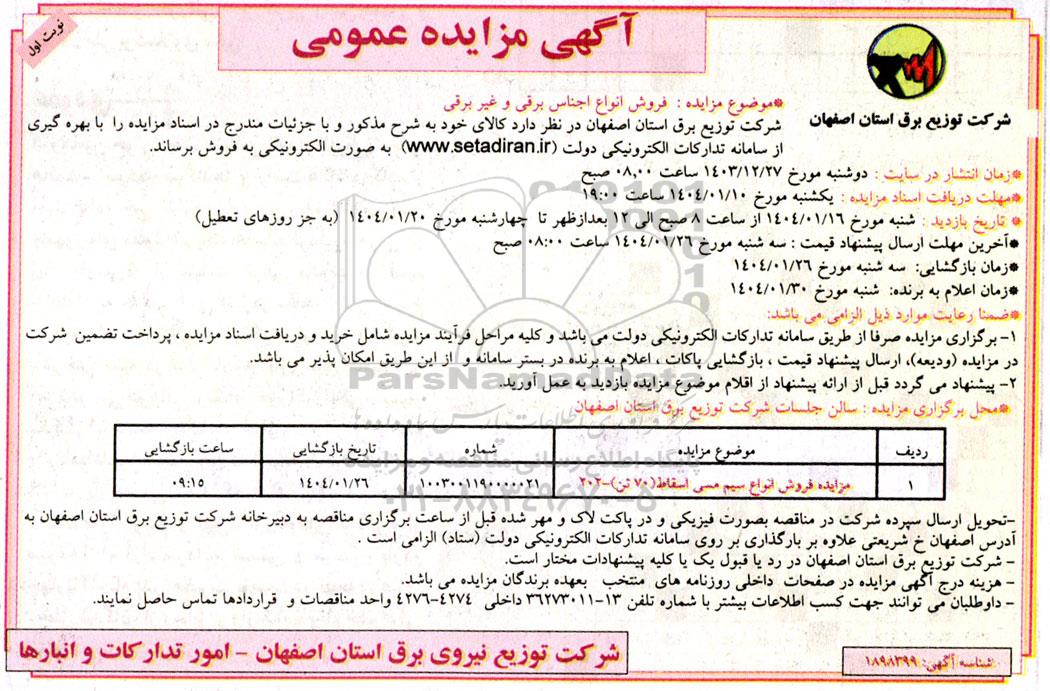 نوبت اول
آگهی مزایده عمومی
شرکت توزیع برق استان اصفهان
*موضوع مزایده : فروش انواع اجناس برقی و غیر برقی
شرکت توزیع برق استان اصفهان در نظر دارد کالای خود به شرح مذکور و با جزئیات مندرج در اسناد مزایده را با بهره گیری
از سامانه تدارکات الکترونیکی دولت (www.setadiran.ir) به صورت الکترونیکی به فروش برساند.
*زمان انتشار در سایت : دوشنبه مورخ ۱۴۰۳/۱۲/۲۷ ساعت ۰۸,۰۰ صبح
*مهلت دریافت اسناد مزایده : یکشنبه مورخ ۱۴۰۴/۰۱/۱۰ ساعت ۱۹:۰۰
* تاریخ بازدید : شنبه مورخ ۱۴۰۴/۰۱/۱۶ از ساعت ۸ صبح الی ۱۲ بعدازظهر تا چهارشنبه مورخ ۱۴۰۴/۰۱/۲۰ (به جز روزهای تعطیل)
*آخرین مهلت ارسال پیشنهاد قیمت : سه شنبه مورخ ۱۴۰۴/۰۱/۲۶ ساعت ۰۸:۰۰ صبح
*زمان بازگشایی: سه شنبه مورخ ۱۴۰۴/۰۱/۲۶
*زمان اعلام به برنده: شنبه مورخ ۱۴۰۴/۰۱/۳۰
*ضمنا رعایت موارد ذیل الزامی می باشد:
۱- برگزاری مزایده صرفا از طریق سامانه تدارکات الکترونیکی دولت می باشد و کلیه مراحل فرآیند مزایده شامل خرید و دریافت اسناد مزایده ، پرداخت تضمین شرکت
در مزایده (ودیعه)، ارسال پیشنهاد قیمت ، بازگشایی پاکات ، اعلام به برنده در بستر سامانه و از این طریق امکان پذیر می باشد.
۲- پیشنهاد می گردد قبل از ارائه پیشنهاد از اقلام موضوع مزایده بازدید به عمل آورید.
*محل برگزاری مزایده : سالن جلسات شرکت توزیع برق استان اصفهان
ردیف موضوع مزایده شماره تاریخ بازگشایی ساعت بازگشایی
۱ مزایده فروش انواع سیم مسی اسقاط(۷۰ تن)-۲۰۲ ۱۰۰۳۰۰۱۱۹۰۰۰۰۰۲۱ ۱۴۰۴/۰۱/۲۶ ۰۹:۱۵
-تحویل ارسال سپرده شرکت در مناقصه بصورت فیزیکی و در پاکت لاک و مهر شده قبل از ساعت برگزاری مناقصه به دبیرخانه شرکت توزیع برق استان اصفهان به
آدرس اصفهان خ شریعتی علاوه بر بارگذاری بر روی سامانه تدارکات الکترونیکی دولت (ستاد) الزامی است .
- شرکت توزیع برق استان اصفهان در رد یا قبول یک یا کلیه پیشنهادات مختار است.
- هزینه درج آگهی مزایده در صفحات داخلی روزنامه های منتخب بعهده برندگان مزایده می باشد.
- داوطلبان می توانند جهت کسب اطلاعات بیشتر با شماره تلفن ۱۳-۳۶۲۷۳۰۱۱ داخلی ۴۲۷۴-۴۲۷۶ واحد مناقصات و قراردادها تماس حاصل نمایند.
شرکت توزیع نیروی برق استان اصفهان - امور تدارکات و انبارها
شناسه آگهی: ۱۸۹۸۳۹۹
ParsNamadData
پایگاه اطلاع رسانی مناقصه و مزایده
۰۲۱-۸۸۳۴۹۶۷۰-۵